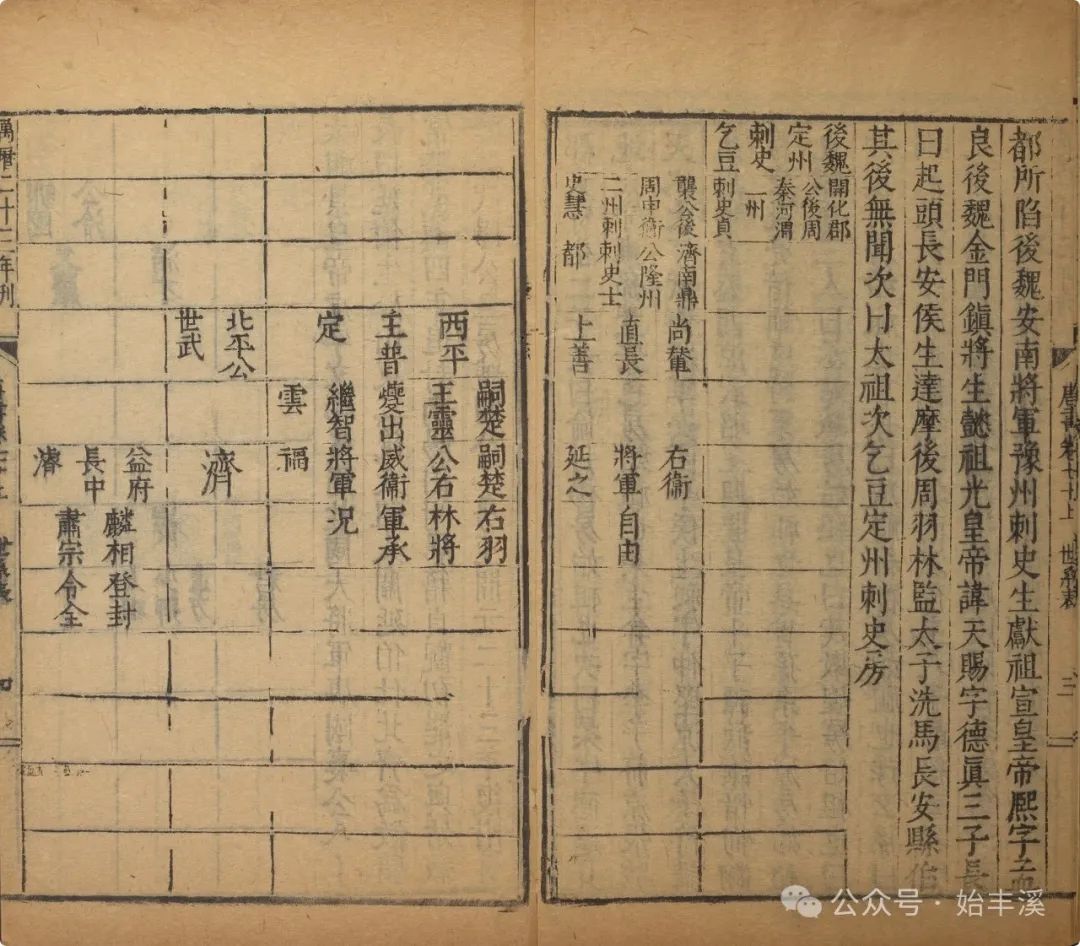 都所陷後魏安南將軍豫州刺史生獻祖宣皇帝熈字孟
良後魏金門鎮將生懿祖光皇帝諱天賜字德眞三子長
曰起頭長安侯生達摩後周羽林監太子洗馬長安縣伯
其後無聞次曰太祖次乞豆定州刺史房
後魏開化郡
定州公後周
刺史秦河渭
乞豆三州
刺史貞
襲公後
周申衛
二州刺
史慧
濟南鼎
公隆州
刺史士
都
尚輦
直長
上善
右衛
將軍自由
延之
西平
王普
定
嗣楚
王靈
夔出
繼智
雲
嗣楚
公右
威衛
將軍
福
右羽
林將
軍承
況
北平公
世武
濟
益府
長中
濬
麟相登封
肅宗令全
萬曆二十三年刊
唐書卷七十上
世系表
三
四
公众号·始丰溪